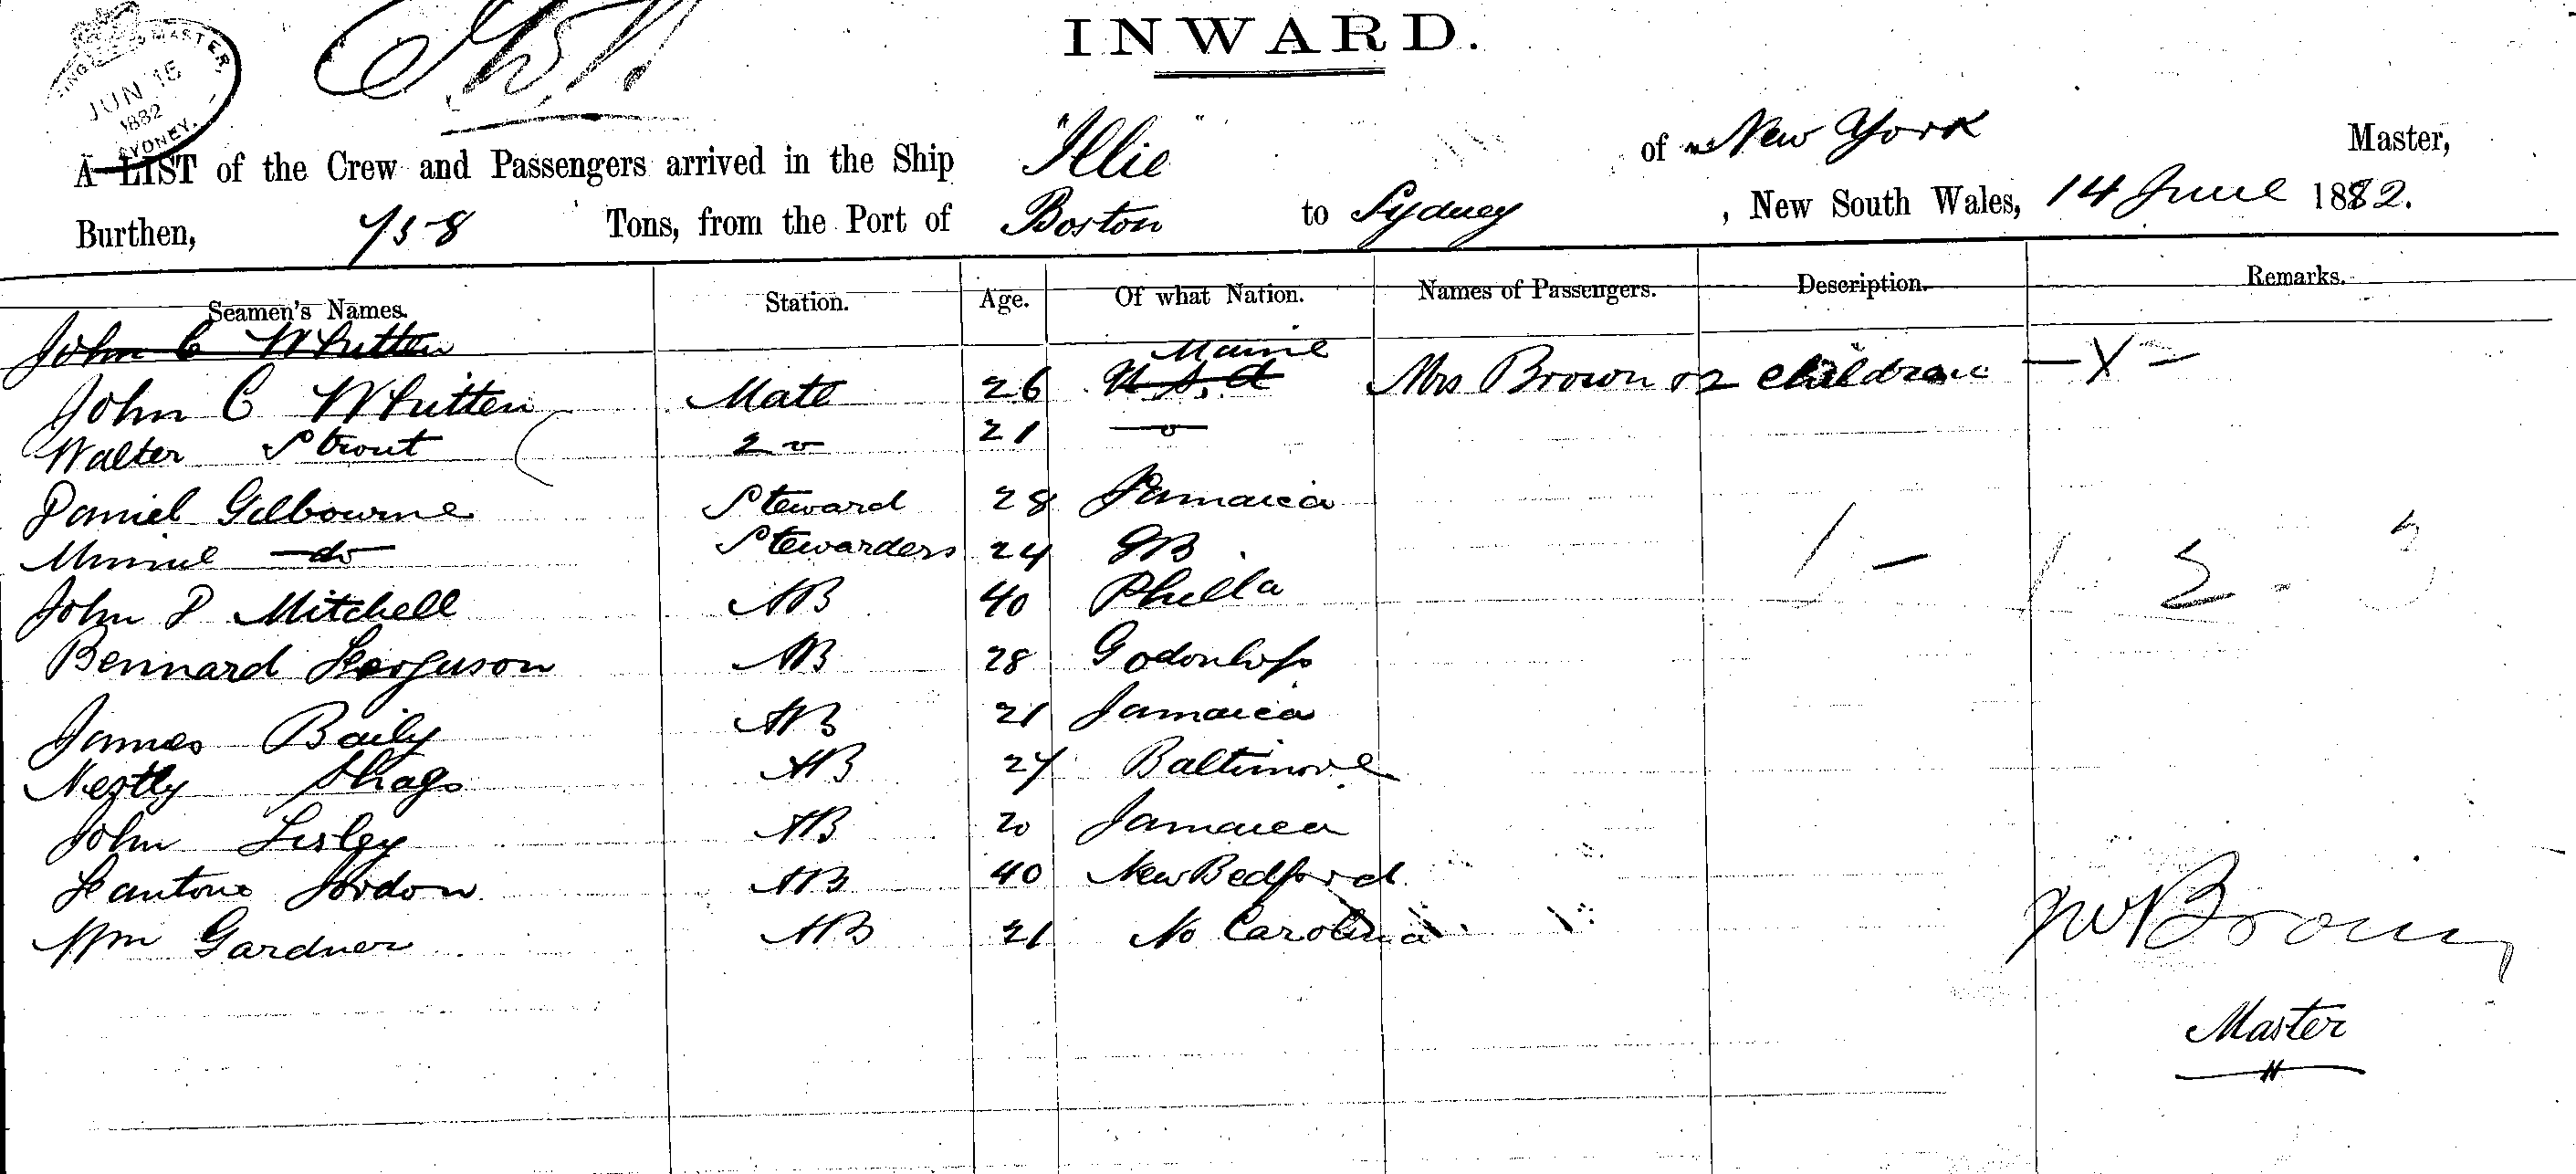 INWARD.
JUN 15
1882
SYDNEY.
A LIST of the Crew and Passengers arrived in the Ship "Illie" of New York Master,
Burthen, 758 Tons, from the Port of Boston to Sydney, New South Wales, 14 June 1882.
Seamen's Names. Station. Age. Of what Nation. Names of Passengers. Description. Remarks.
John C Whitten
Maine
John C Whitten Mate 26 U.S.A Mrs Brown 2 children - X -
Walter Strout 2 21
Daniel Gilbourne Steward 28 Jamaica
do Stewardess 24 GB
John P Mitchell AB 40 Philla
Bennard Ferguson AB 28
James Baily AB 21 Jamaica
AB 27 Baltimore
John AB 20 Jamaica
Jordon AB 40 New Bedford
Wm Gardner AB 21 No Carolina
Brown
Master